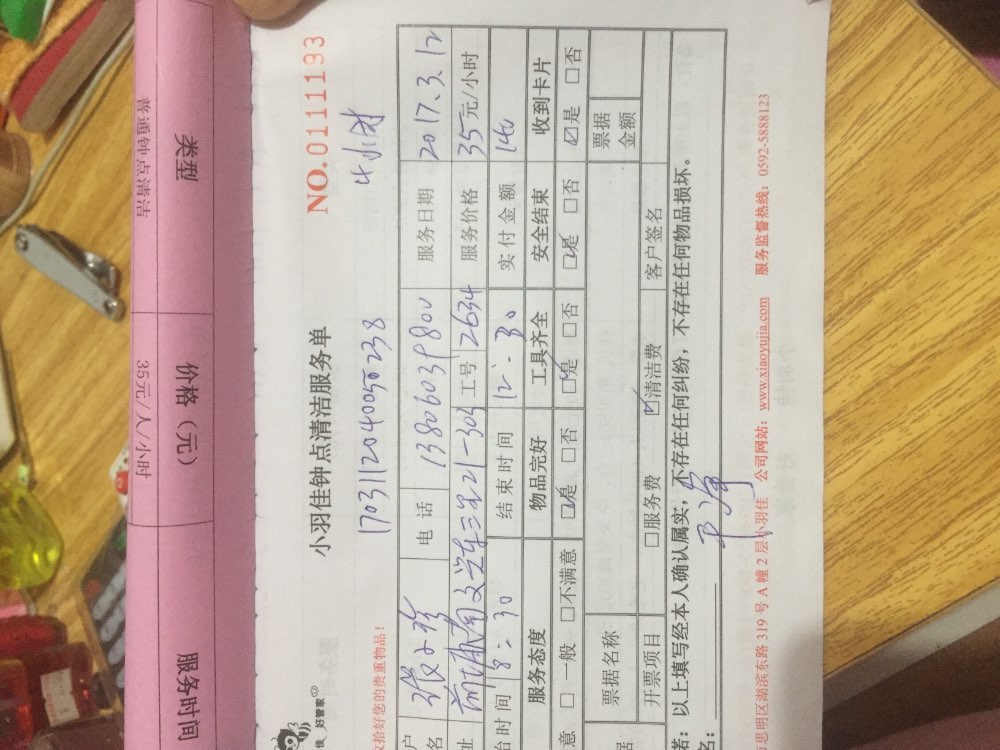 类型
价格（元）
服务时间
普通钟点清洁
35元/人/小时
佳 好管家
小羽佳钟点清洁服务单
NO.0111193
收拾好您的贵重物品！
170311204005238
4小时
户名
电话
13806039800
服务日期
2017.3.12
址
工号
2634
服务价格
35元/小时
始时间
8：30
结束时间
12：30
实付金额
140
服务态度
物品完好
工具齐全
安全结束
收到卡片
意 □一般 □不满意
☑是 □否
☑是 □否
☑是 □否
☑是 □否
据
票据名称
票据金额
开票项目
□服务费
☑清洁费
客户签名
若：以上填写经本人确认属实，不存在任何纠纷，不存在任何物品损坏。
名：
思明区湖滨东路 319 号 A 幢 2 层小羽佳 公司网站：www.xiaoyujia.com 服务监督热线：0592-5888123